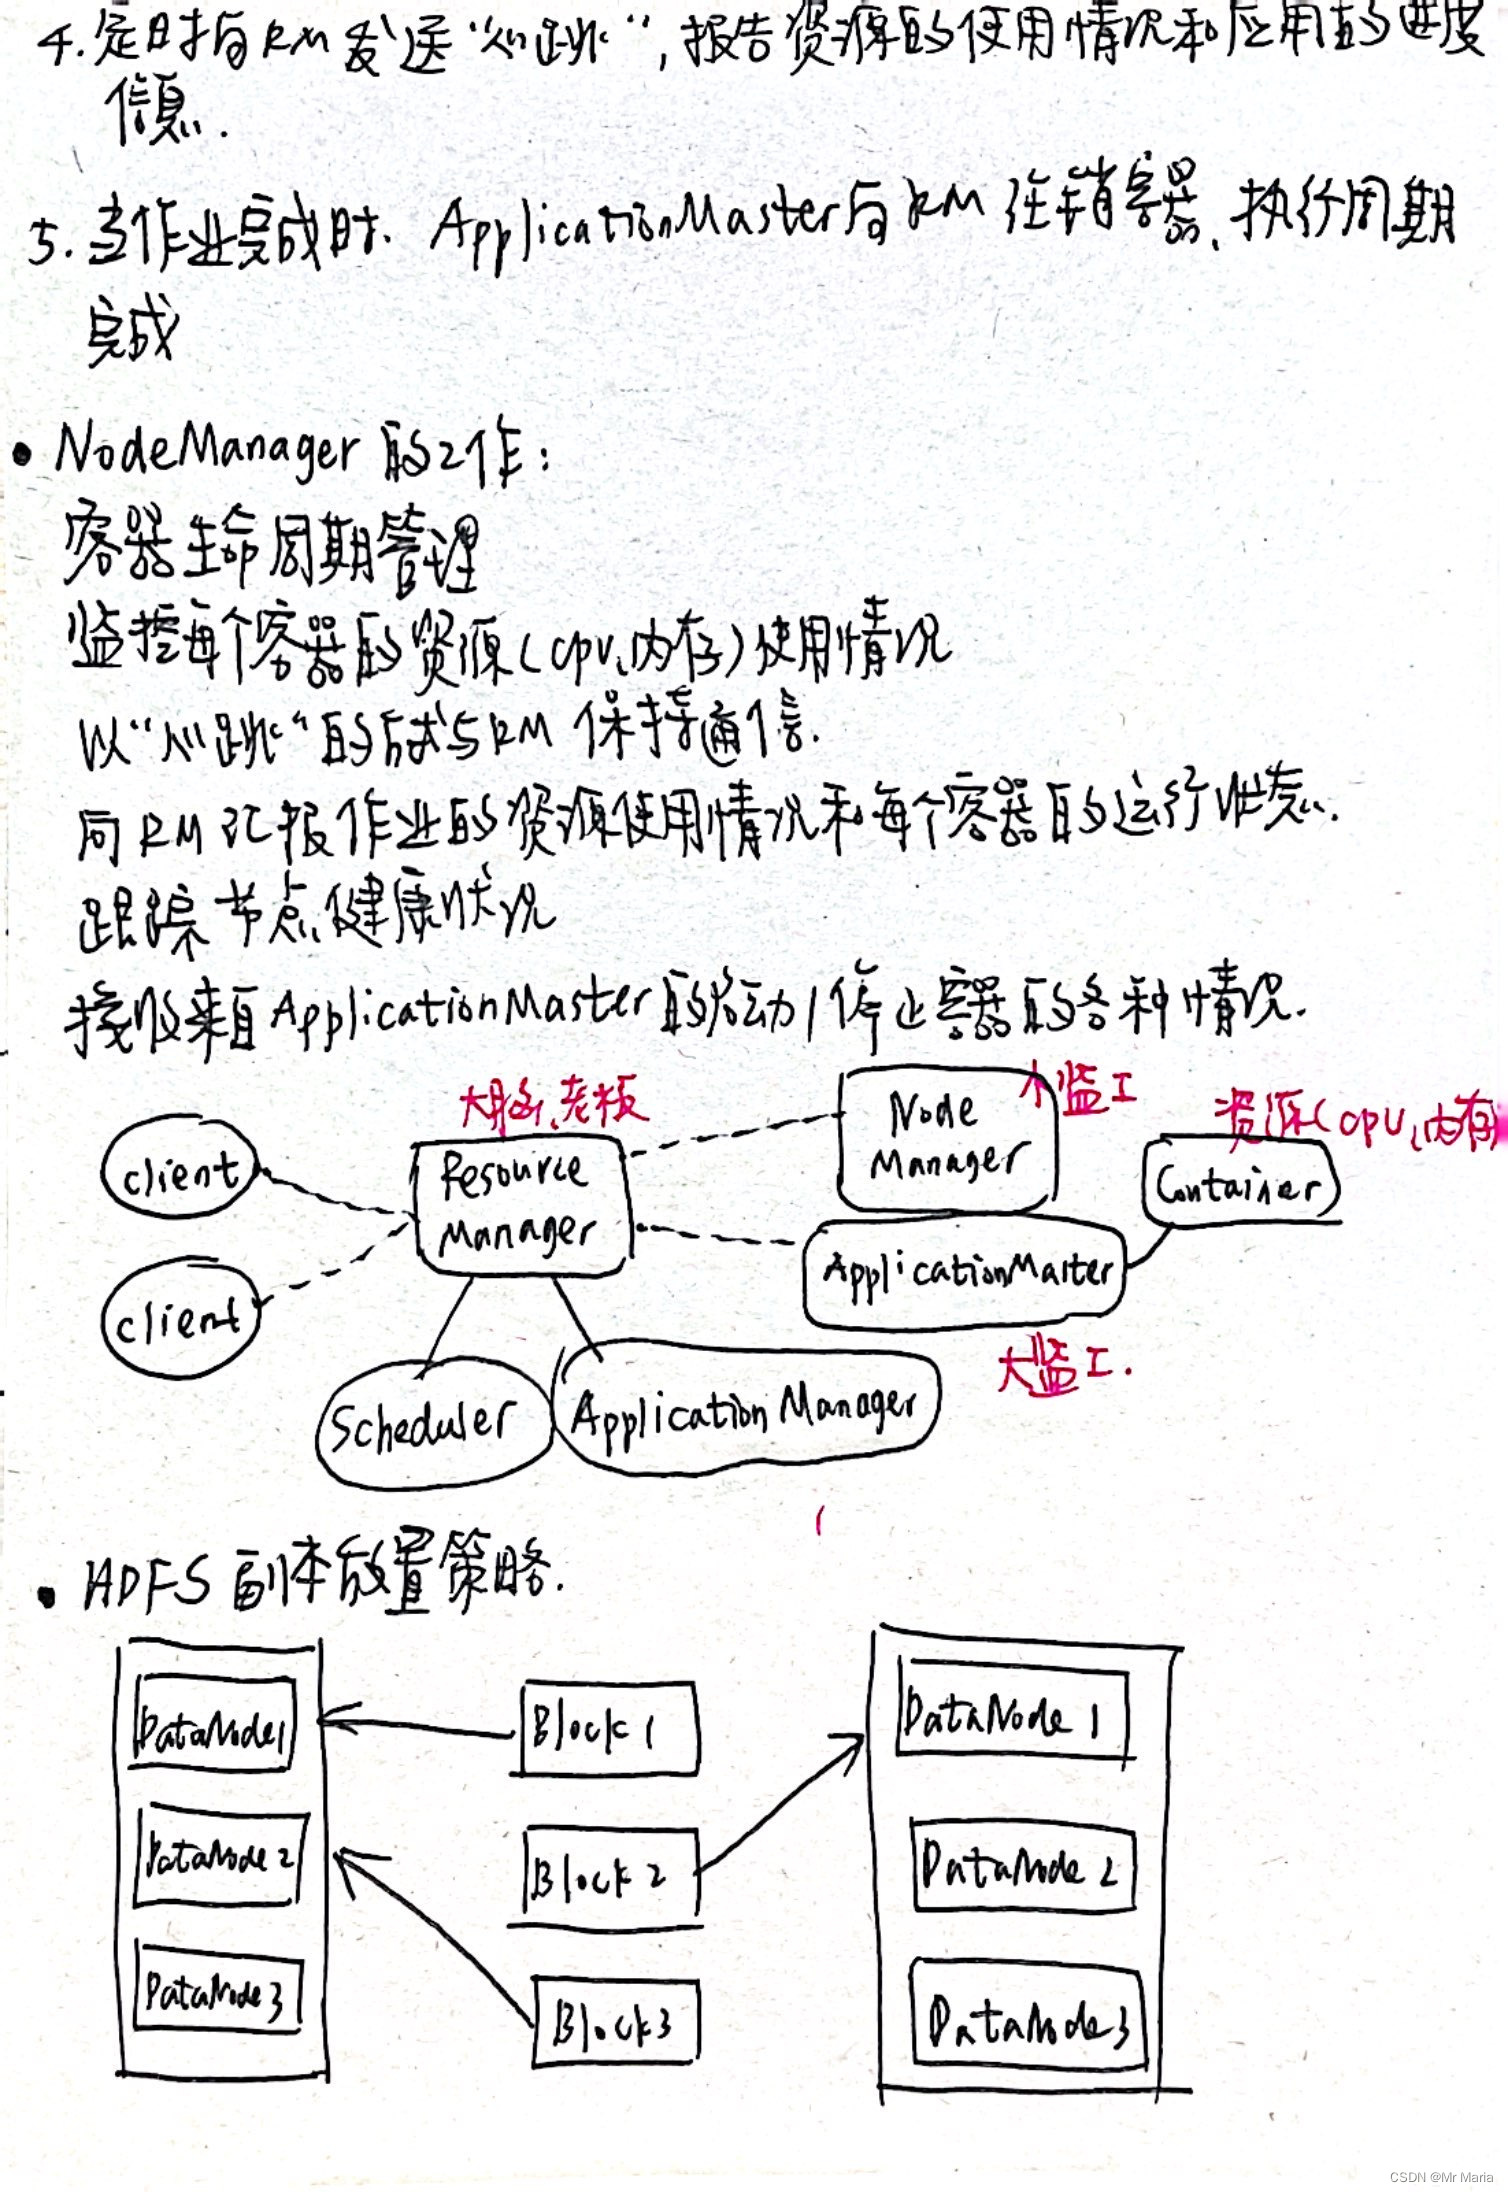 4.定时向RM发送“心跳”,报告资源的使用情况和应用的进度
信息.
5.当作业完成时. ApplicationMaster向RM注销容器、执行周期
完成
• NodeManager 的工作:
容器生命周期管理
监控每个容器的资源(cpu、内存)使用情况
以“心跳”的方式与RM 保持通信.
向RM汇报作业的资源使用情况和每个容器的运行状态.
跟踪节点健康状况
接收来自ApplicationMaster的启动/停止容器的各种情况.
大脑、老板
小监工
资源(cpu、内存)
client
Resource
Manager
Node
Manager
Container
client
ApplicationMaster
大监工.
Scheduler
Application Manager
• HDFS 副本放置策略.
DataNode1
Block1
DataNode 1
DataNode2
Block2
DataNode 2
DataNode3
Block3
DataNode3
CSDN @Mr Maria